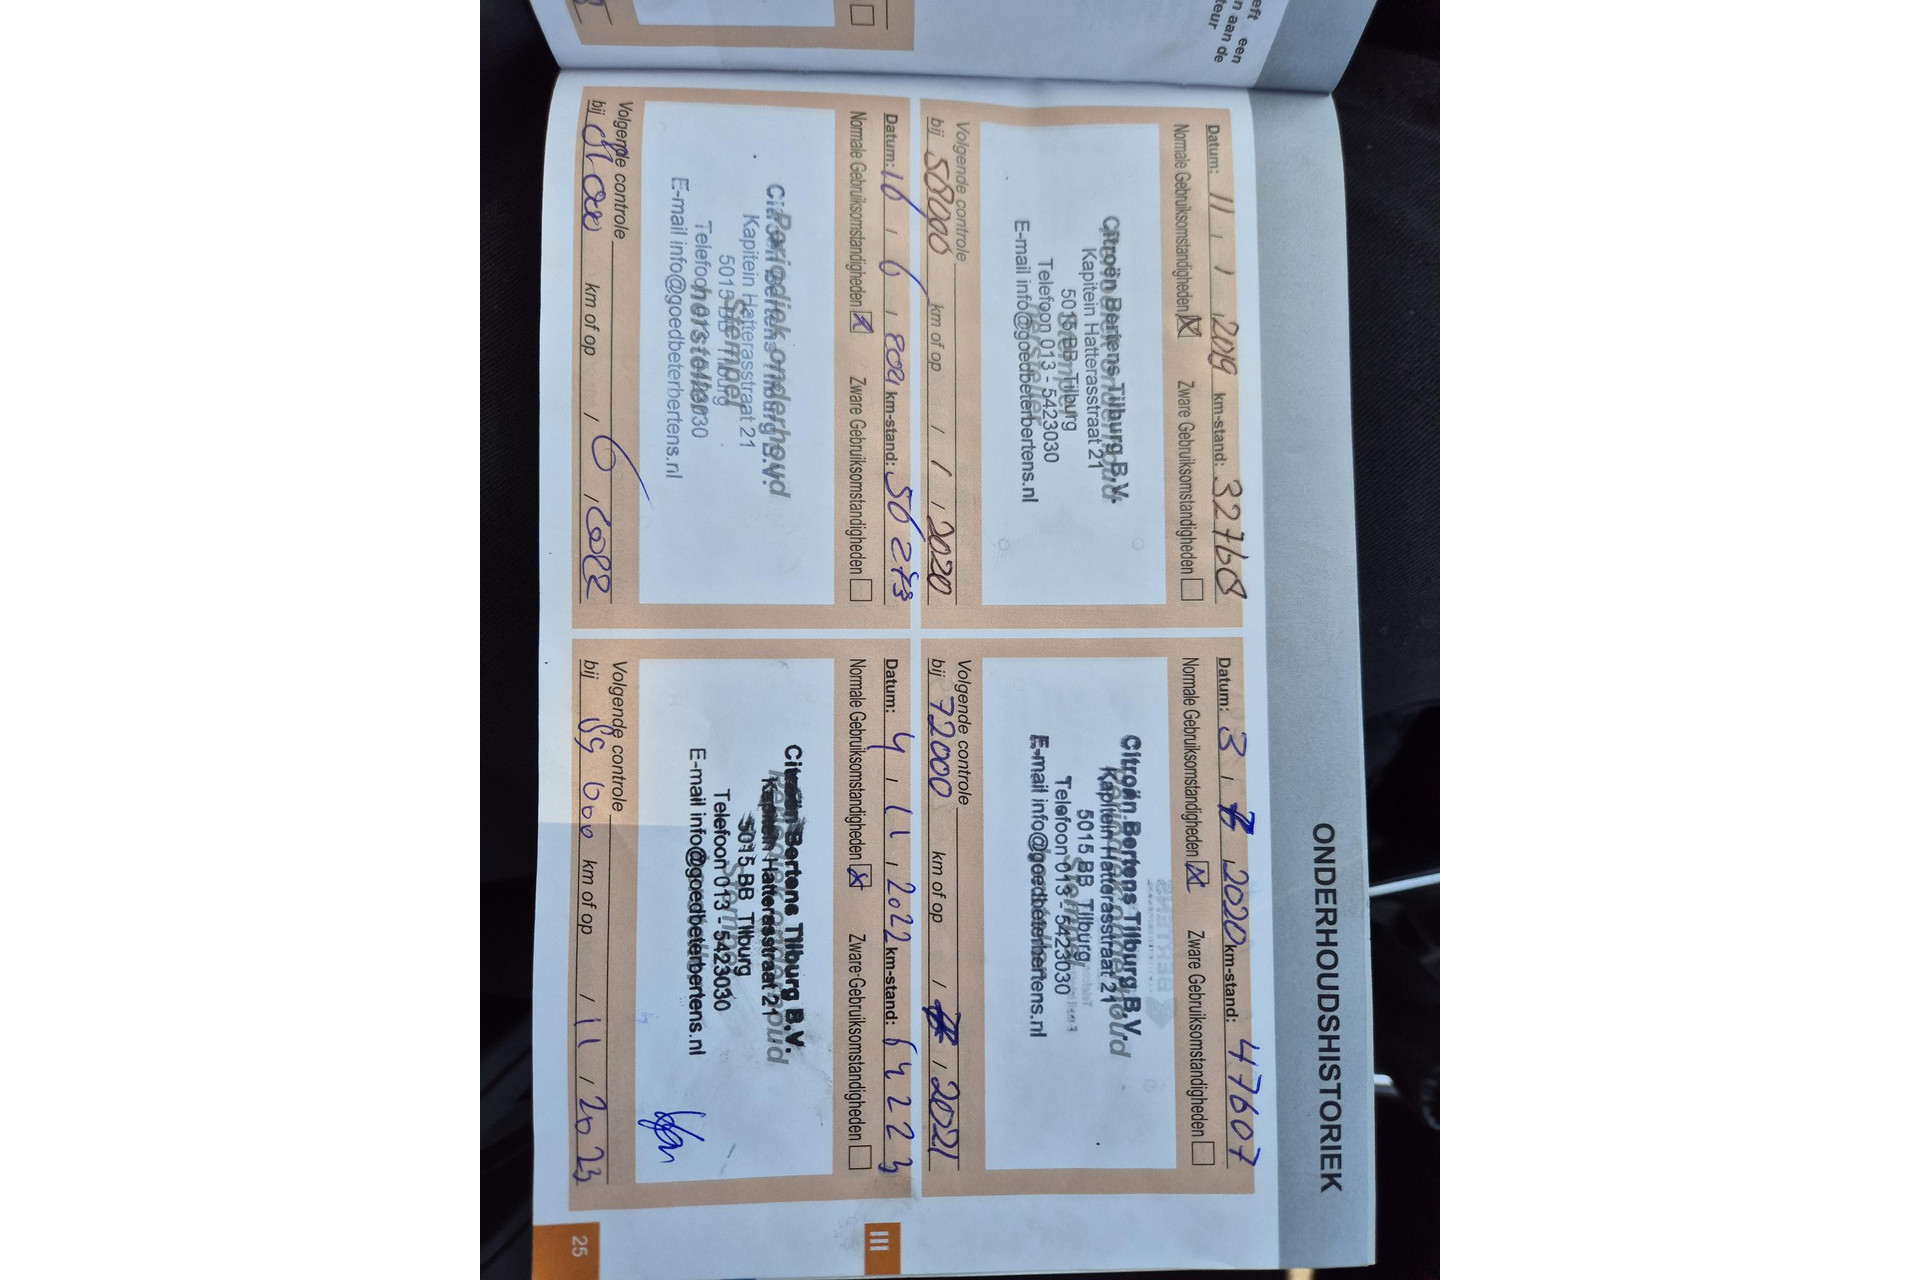 eft een
n aan de
teur
ONDERHOUDSHISTORIEK
Datum: 11 / 1 / 2019 km-stand: 32768
Normale Gebruiksomstandigheden ☒ Zware Gebruiksomstandigheden ☐
Citroën Bertens Tilburg B.V.
Kapitein Hatterasstraat 21
5015 BB Tilburg
Telefoon 013 - 5423030
E-mail info@goedbeterbertens.nl
Volgende controle
bij 58000 km of op / 1 / 2020
Datum: 3 / 7 / 2020 km-stand: 47607
Normale Gebruiksomstandigheden ☒ Zware Gebruiksomstandigheden ☐
Periodiek onderhoud
Stempel
Citroën Bertens Tilburg B.V.
Kapitein Hatterasstraat 21
5015 BB Tilburg
Telefoon 013 - 5423030
E-mail info@goedbeterbertens.nl
Volgende controle
bij 72000 km of op / 7 / 2021
Datum: 16 / 6 / 2021 km-stand: 56273
Normale Gebruiksomstandigheden ☒ Zware Gebruiksomstandigheden ☐
Periodiek onderhoud
Stempel
hersteller
Citroën Bertens Tilburg B.V.
Kapitein Hatterasstraat 21
5015 BB Tilburg
Telefoon 013 - 5423030
E-mail info@goedbeterbertens.nl
Volgende controle
bij 81000 km of op / 6 / 2022
Datum: 4 / 11 / 2022 km-stand: 64223
Normale Gebruiksomstandigheden ☒ Zware Gebruiksomstandigheden ☐
Citroën Bertens Tilburg B.V.
Kapitein Hatterasstraat 21
5015 BB Tilburg
Telefoon 013 - 5423030
E-mail info@goedbeterbertens.nl
Volgende controle
bij 89000 km of op / 11 / 2023
III
25